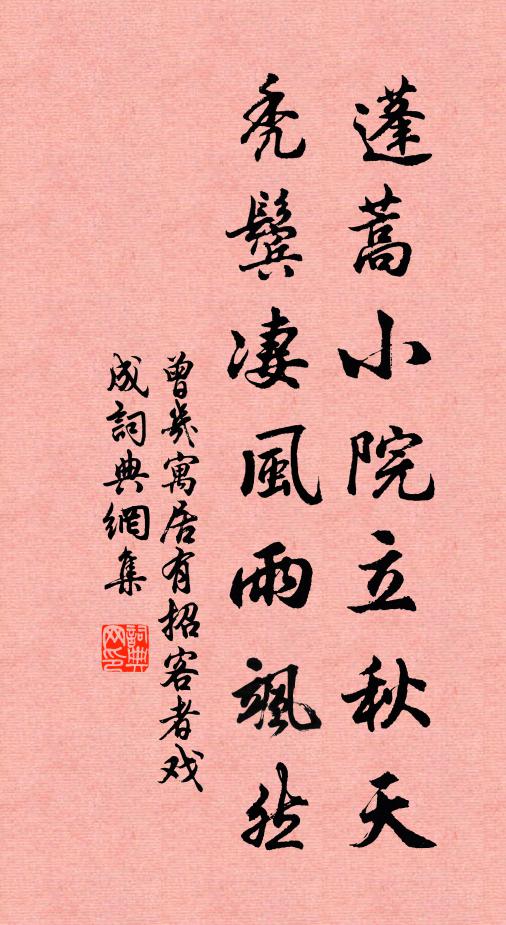 蓬蒿小院立秋天
禿鬢凄風雨颯然
曾幾寓居有招客者戏
成詞典網集
詞典网印